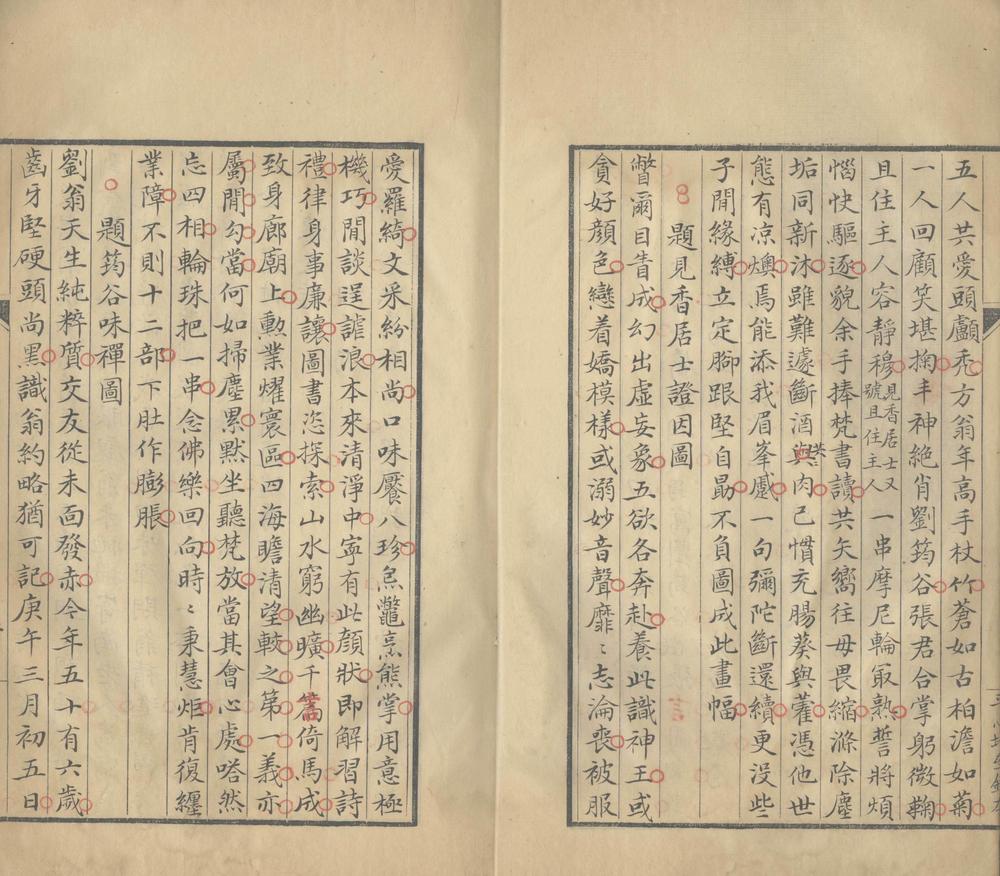 五人共愛頭顱禿方翁年高手杖竹蒼如古柏澹如菊
一人回顧笑堪掬丰神絶肖劉筠谷張君合掌躬微鞠
且住主人容靜穆見香居士又號且住主人一串摩尼輪最熟誓將煩
惱快驅逐貌余手捧梵書讀共矢嚮往毋畏縮滌除塵
垢同新沐雖難遽斷酒與肉已慣充腸葵與藿憑他世
態有凉燠焉能添我眉峯蹙一句彌陀斷還續更没些
子閒緣縛立定腳跟堅自勗不負圖成此畫幅
題見香居士證因圖
瞥爾目眚成幻出虛妄象五欲各奔赴養此識神王或
貪好顔色戀着嬌模樣或溺妙音聲靡〻志淪喪被服
愛羅綺文采紛相尚口味饜八珍炰鼈烹熊掌用意極
機巧閒談逞謔浪本來清淨中寕有此顔狀即解習詩
禮律身事廉讓圖書恣探索山水窮幽曠千篇倚馬成
致身廊廟上勳業燿寰區四海瞻清望較之第一義亦
屬閒勾當何如掃塵累默坐聽梵放當其會心處嗒然
忘四相輪珠把一串念佛樂回向時〻秉慧炬肯復纏
業障不則十二部下肚作膨脹
題筠谷味禪圖
劉翁天生純粹質交友從未面發赤今年五十有六歲
齒牙堅硬頭尚黑識翁約略猶可記庚午三月初五日